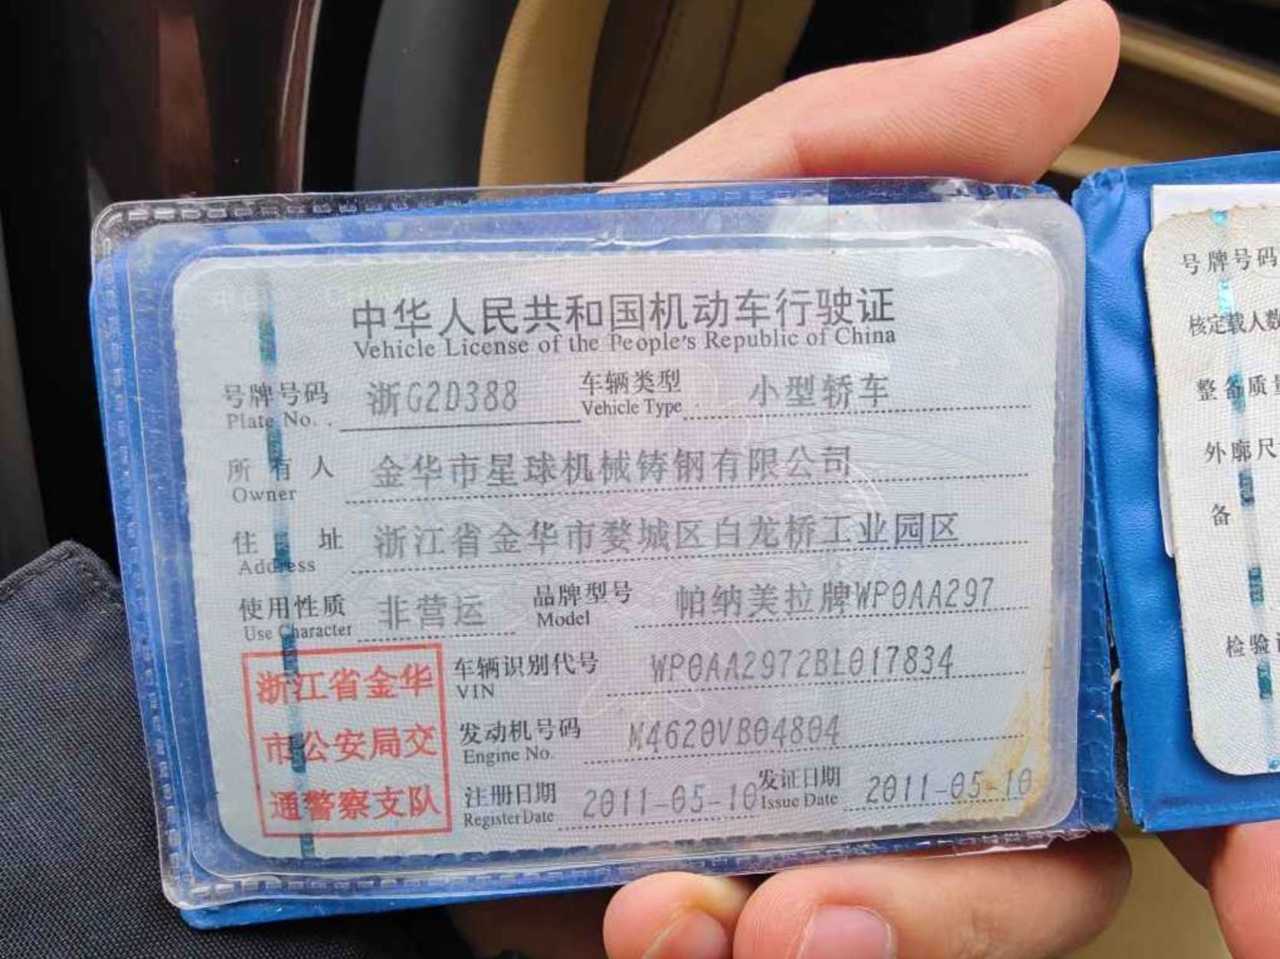 中华人民共和国机动车行驶证
Vehicle License of the People's Republic of China
号牌号码 浙G2D388 车辆类型 小型轿车
Plate No. Vehicle Type
所有人 金华市星球机械铸钢有限公司
Owner
住址 浙江省金华市婺城区白龙桥工业园区
Address
使用性质 非营运 品牌型号 帕纳美拉牌WP0AA297
Use Character Model
浙江省金华
市公安局交
通警察支队
车辆识别代号 WP0AA2972BL017834
VIN
发动机号码 M4620VB04804
Engine No.
注册日期 2011-05-10 发证日期 2011-05-10
Register Date Issue Date
号牌号码
核定载人数
整备质量
外廓尺
备
检验